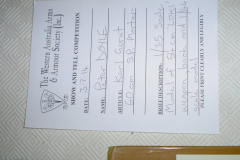 The Western Australia Arms
& Armour Society (Inc.)
SHOW AND TELL COMPETITION
DATE: 3-7-16
NAME: Peter DOYLE
ARTICLE: Karl Geraet
60cm SP Mortar
BRIEF DESCRIPTION: 1/35 Scale
Model of 54cm
weapon
PLEASE PRINT CLEARLY AND LEGIBLY